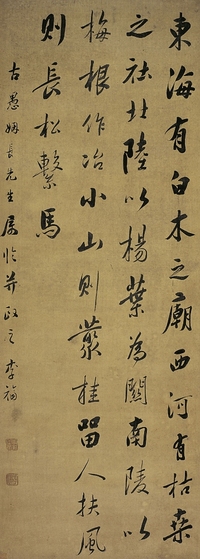 東海有白木之廟西河有枯桒
之社北陸以楊葉為關南陵以
梅根作冶小山則叢桂留人扶風
則長松繫馬
古愚姻長先生屬臨并政之 李福